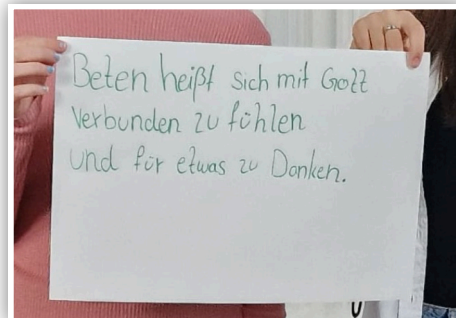 Beten heißt sich mit Gott
Verbunden zu fühlen
und für etwas zu Danken.